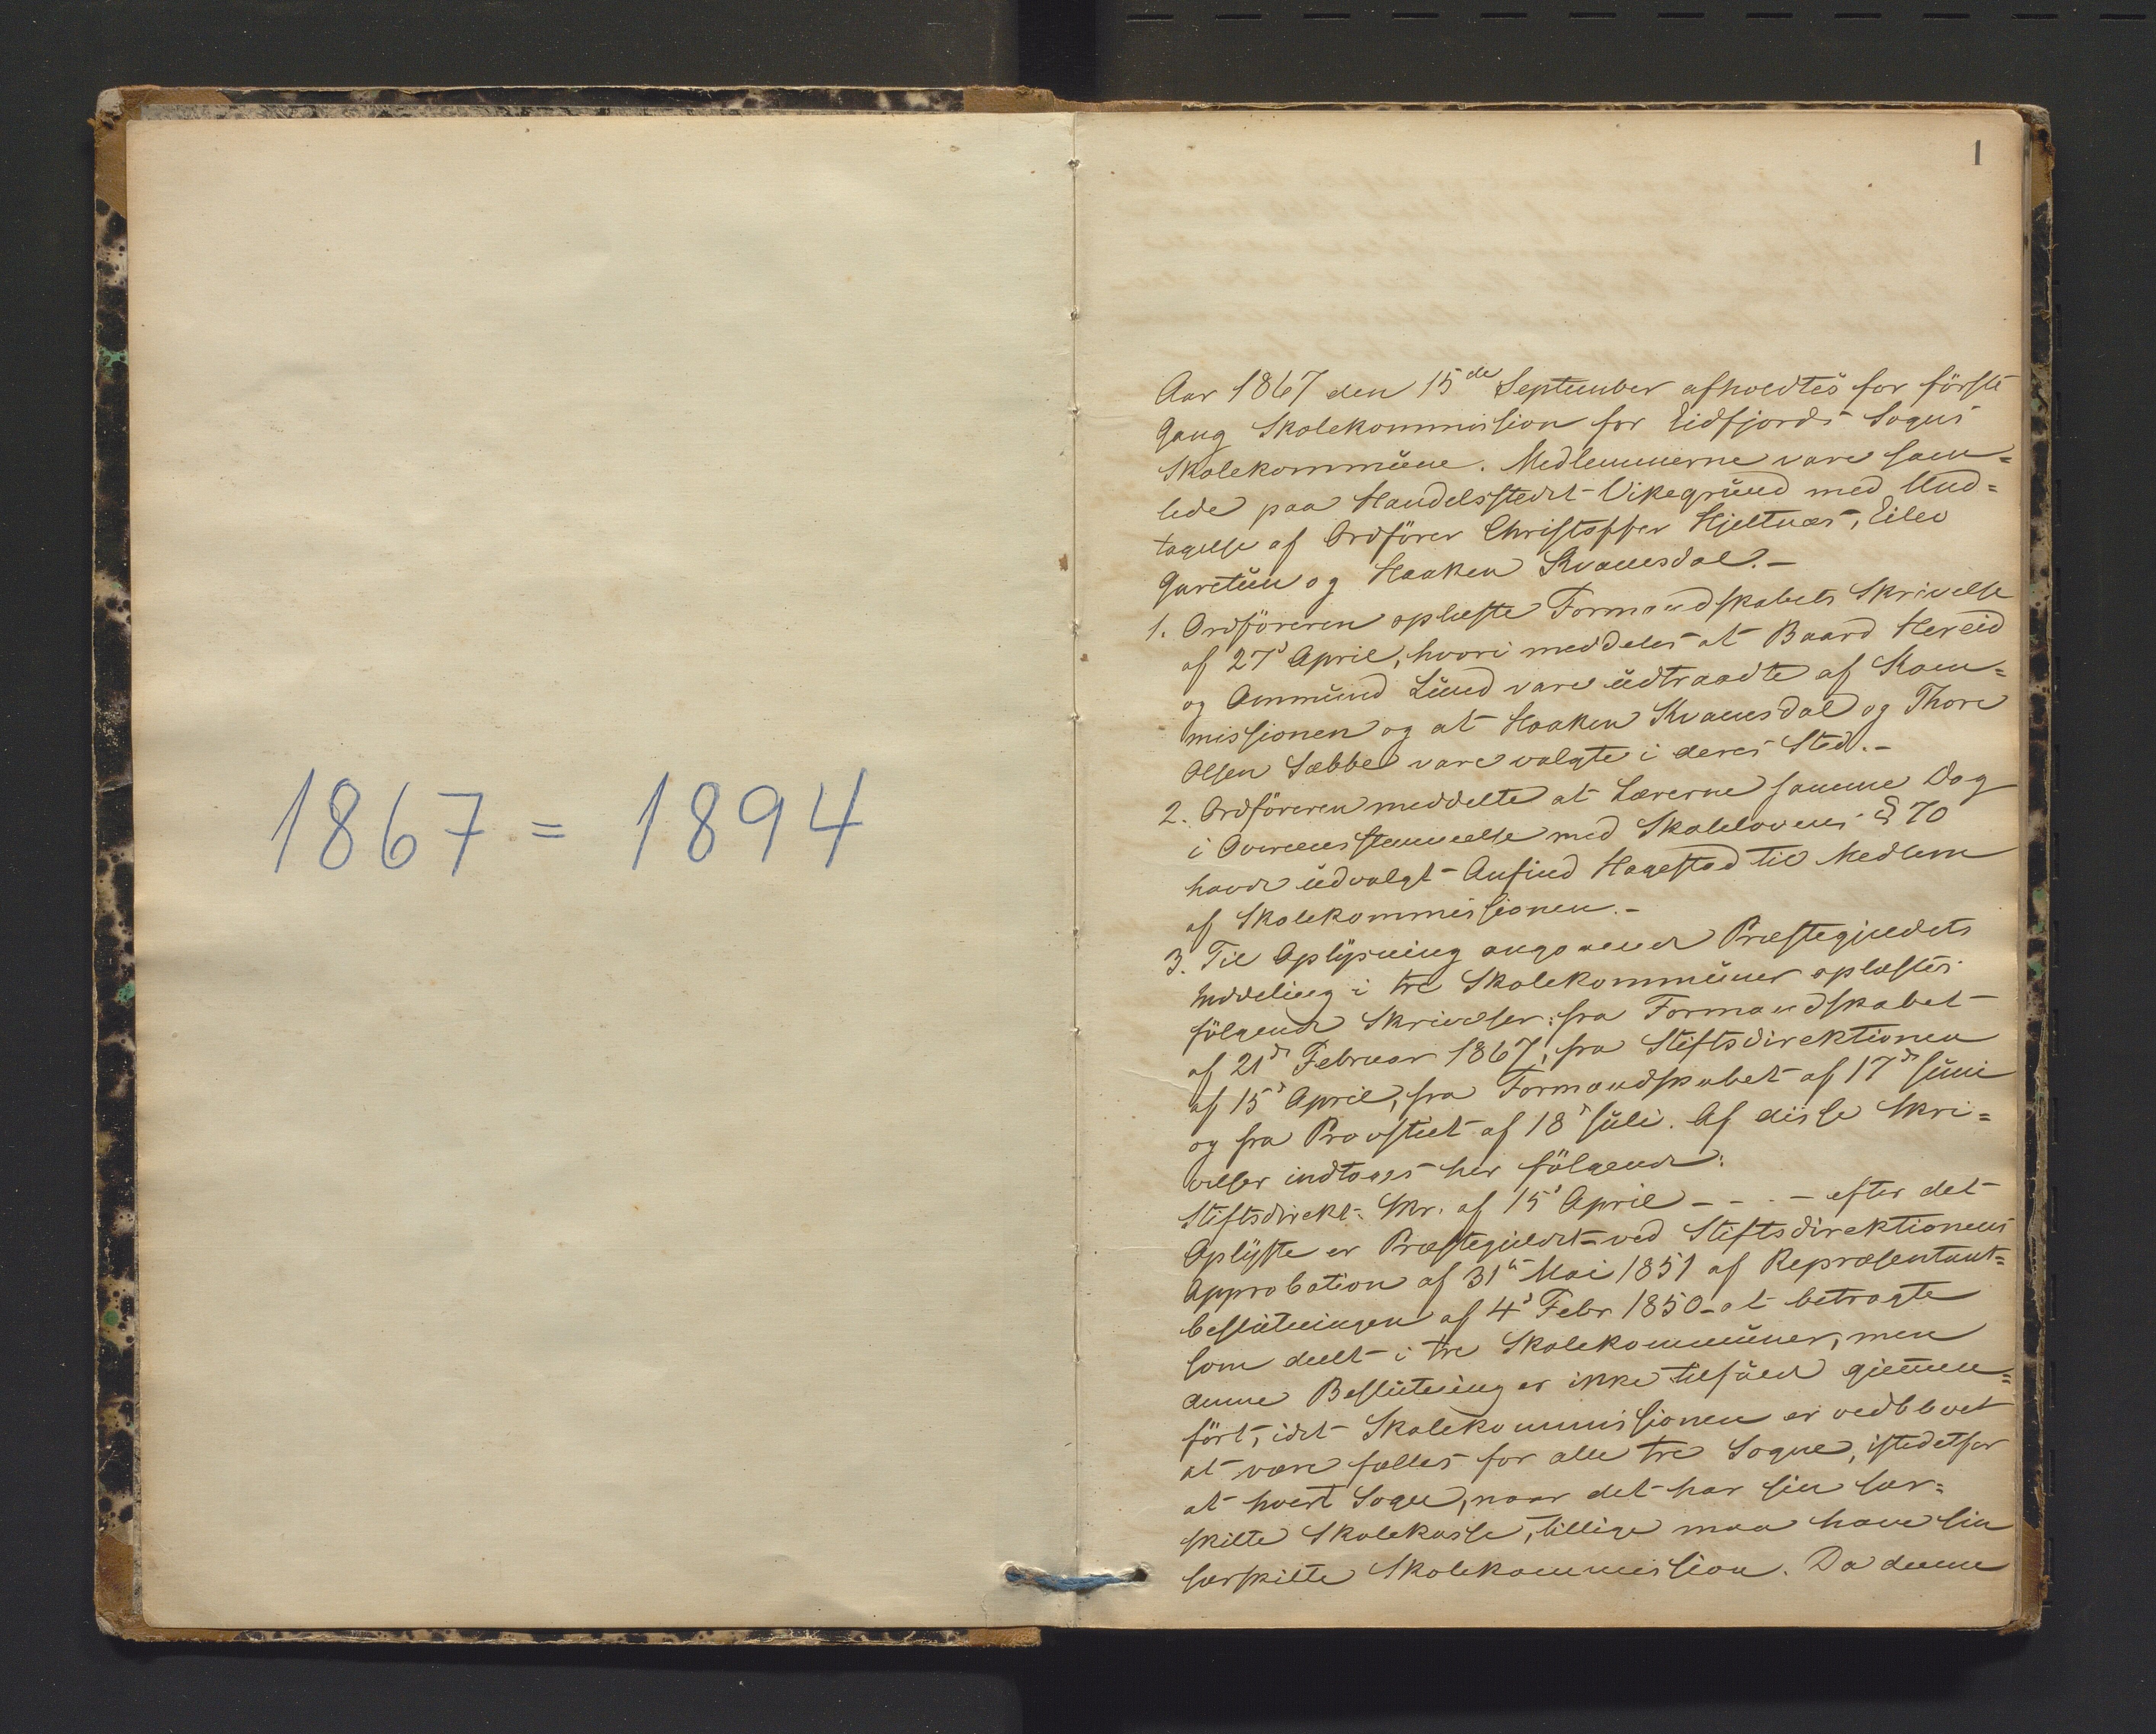 1867 = 1894
1
Aar 1867 den 15de September afholdtes for förste
Gang Skolekommission for Eidfjords Sogns
Skolekommune. Medlemmerne vare sam=
lede paa Handelsstedet Vikegrund med Und=
tagelse af Ordförer Christoffer Hjeltnæs, Eilev
Garetun og Haaken Kvamsdal.-
1. Ordföreren oplæste Formandskabets Skrivelse
af 27d April, hvori meddeles at Baard Hereid
og Ommund Lund vare udtraadte af Kom=
missionen og at Haaken Kvamsdal og Thore
Olsen Sæbbe vare valgte i deres Sted.-
2. Ordföreren meddelte at Lærerne samme Dag
i Overensstemmelse med Skolelovens § 70
havde udvalgt Anfind Hagestad til Medlem
af Skolekommissionen.-
3. Til Oplysning angaaende Præstegjeldets
Inddeling i tre Skolekommuner oplæstes
fölgende Skrivelser: fra Formandskabet
af 21d Februar 1867, fra Stiftsdirektionen
af 15d April, fra Formandskabet af 17d Juni
og fra Provstiet af 18d Juli. Af disse Skri=
velser indtages her fölgende:
Stiftsdirekt. Skr. af 15d April - - - - efter det
Oplyste er Præstegjeldet ved Stiftsdirektionens
Approbation af 31te Mai 1851 af Repræsentant=
beslutningen af 4d Febr 1850 at betragte
som deelt i tre Skolekommuner, men
denne Beslutning er ikke tilfulde gjennem=
fört, idet Skolekommissionen er vedblevet
at være fælles for alle tre Sogne, istedetfor
at hvert Sogn, naar det har sin sær=
skilte Skolekasse, tillige maa have sin
særskilte Skolekommission. Da denne